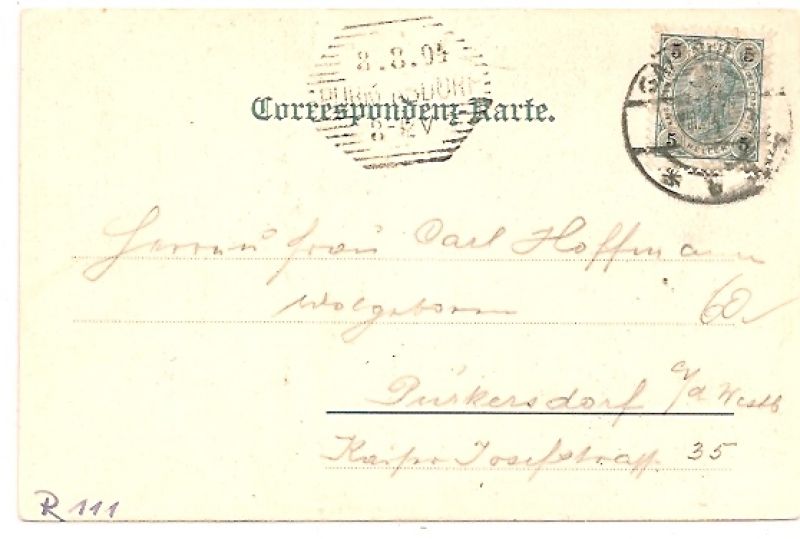 8.8.04
Correspondenz-Karte.
5 5
5 5
HELLER
Herrn u frau Carl Hoffmann
Wolgeboren 60
Purkersdorf a/d Westb
Kaiser Josefstrasse 35
R 111